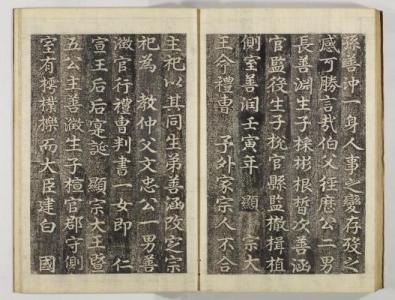 孫善沖一身人事之變存歿之
感可勝言哉伯父公二男
長善淵生子彬根晳次善涵
官監役生子杬官縣監楫植
側室善潤壬寅年 顯 宗大
王命禮曹 予外家宗人不合
主祀以其同生弟善涵改定宗
祀爲 教仲父文忠公一男善
澂官行禮曹判書一女即 仁
宣王后后寔誕 顯宗大王曁
五公主善澂生子楦官郡守側
室有樗樸檪而大臣建白 國